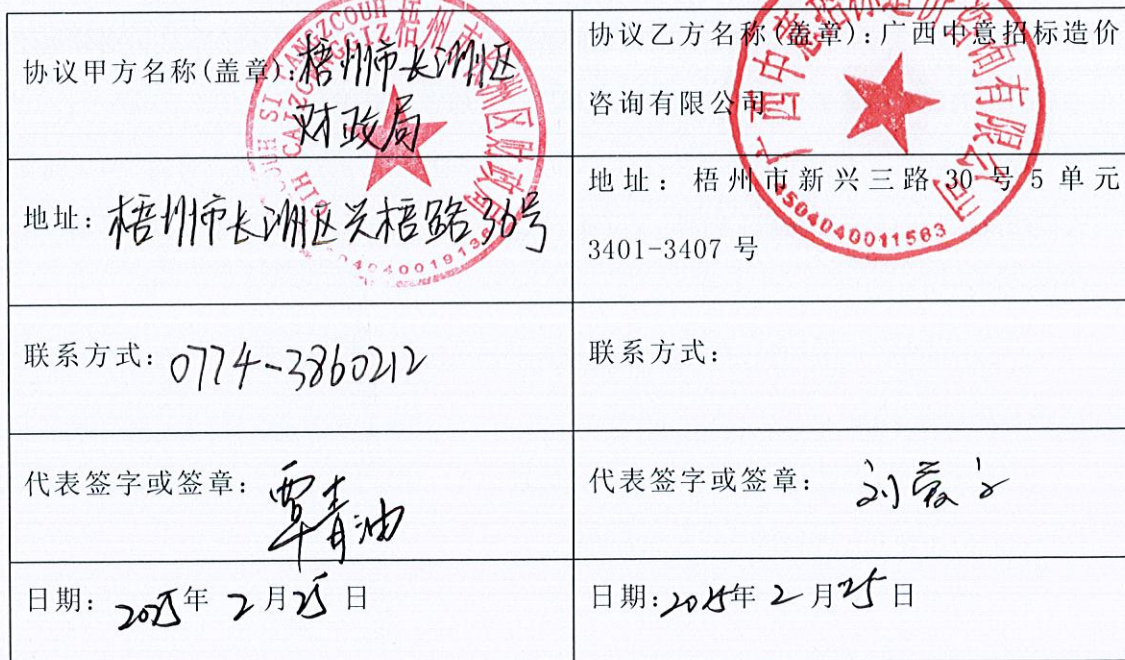 协议甲方名称(盖章):梧州市长洲区
财政局
协议乙方名称(盖章):广西中意招标造价
咨询有限公司
地址:梧州市长洲区兴梧路36号
地址:梧州市新兴三路30号5单元
3401-3407号
联系方式:0774-3860212
联系方式:
代表签字或签章:覃青油
代表签字或签章:刘
日期:2025年2月25日
日期:2025年2月25日
广西中意招标造价咨询有限公司
4504040011563